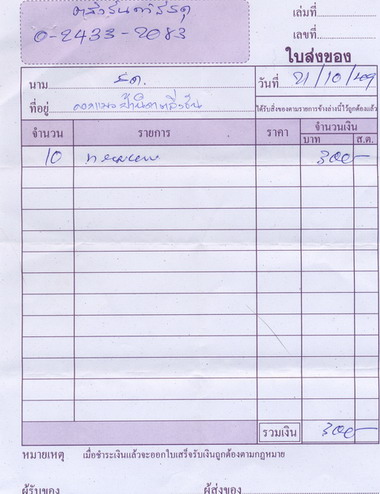 เล่มที่
0-2433-2083
เลขที่
ใบส่งของ
นาม วันที่ 21/10/
ที่อยู่ ได้รับสิ่งของตามรายการข้างล่างนี้ไว้ถูกต้องแล้ว
จำนวน รายการ ราคา จำนวนเงิน
บาท ส.ต.
10 300-
รวมเงิน 300-
หมายเหตุ เมื่อชำระเงินแล้วจะออกใบเสร็จรับเงินถูกต้องตามกฎหมาย
ผู้รับของ ผู้ส่งของ